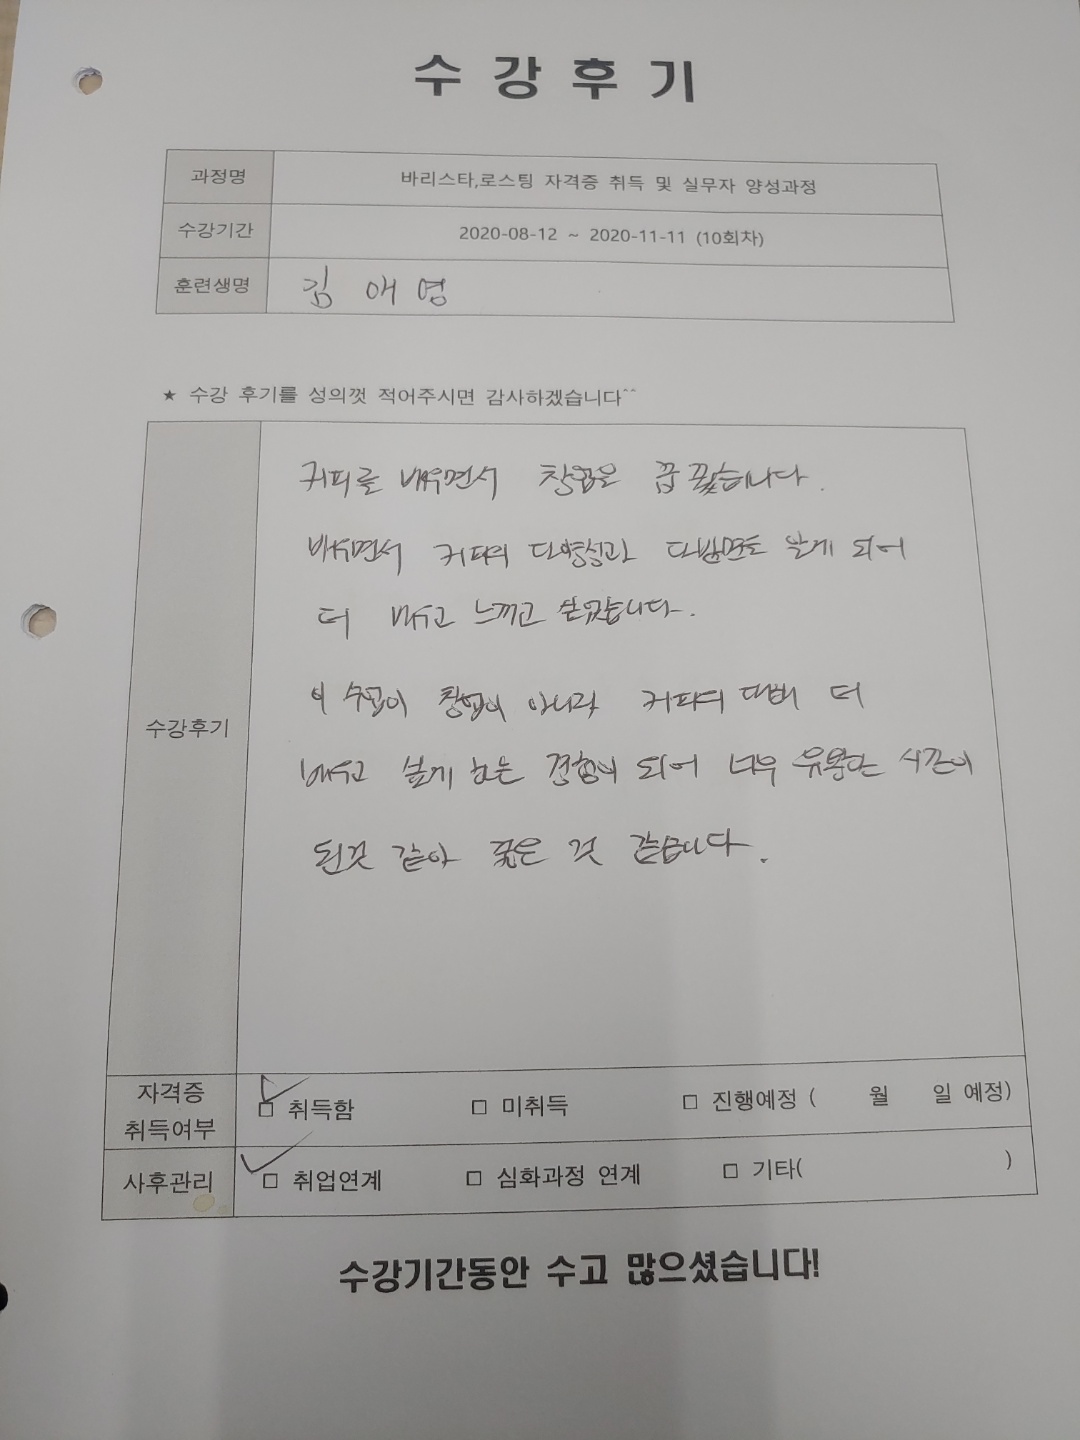 수 강 후 기
과정명 바리스타,로스팅 자격증 취득 및 실무자 양성과정
수강기간 2020-08-12 ~ 2020-11-11 (10회차)
훈련생명 김 애 영
★ 수강 후기를 성의껏 적어주시면 감사하겠습니다^^
수강후기
커피를 배우면서 창업을 꿈 꿨습니다.
배우면서 커피의 다양성과 다방면도 알게 되어
더 배우고 느끼고 싶었습니다.
이 수업이 창업이 아니라 커피에 대해 더
배우고 알게 하는 경험이 되어 너무 유용한 시간이
된것 같아 좋은 것 같습니다.
자격증 취득여부 □ 취득함 □ 미취득 □ 진행예정 ( 월 일 예정)
사후관리 □ 취업연계 □ 심화과정 연계 □ 기타( )
수강기간동안 수고 많으셨습니다!